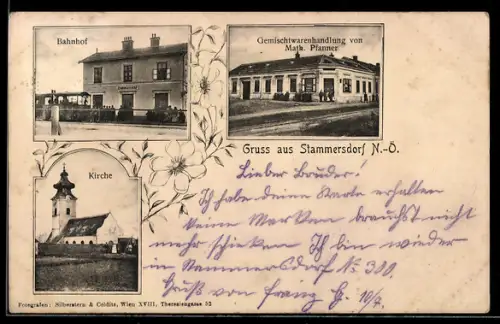 Bahnhof
Gemischtwarenhandlung von
Math. Pfanner
Gruss aus Stammersdorf N.-Ö.
Kirche
Lieber Bruder!
Ich habe deine Karte erhalten
keine Marken brauchst nicht
mehr schicken Ich bin wieder
in Stammersdorf No 300.
Gruß von Franz G. 10/7.
Fotografen: Silberstern & Colditz, Wien XVIII, Theresiengasse 32